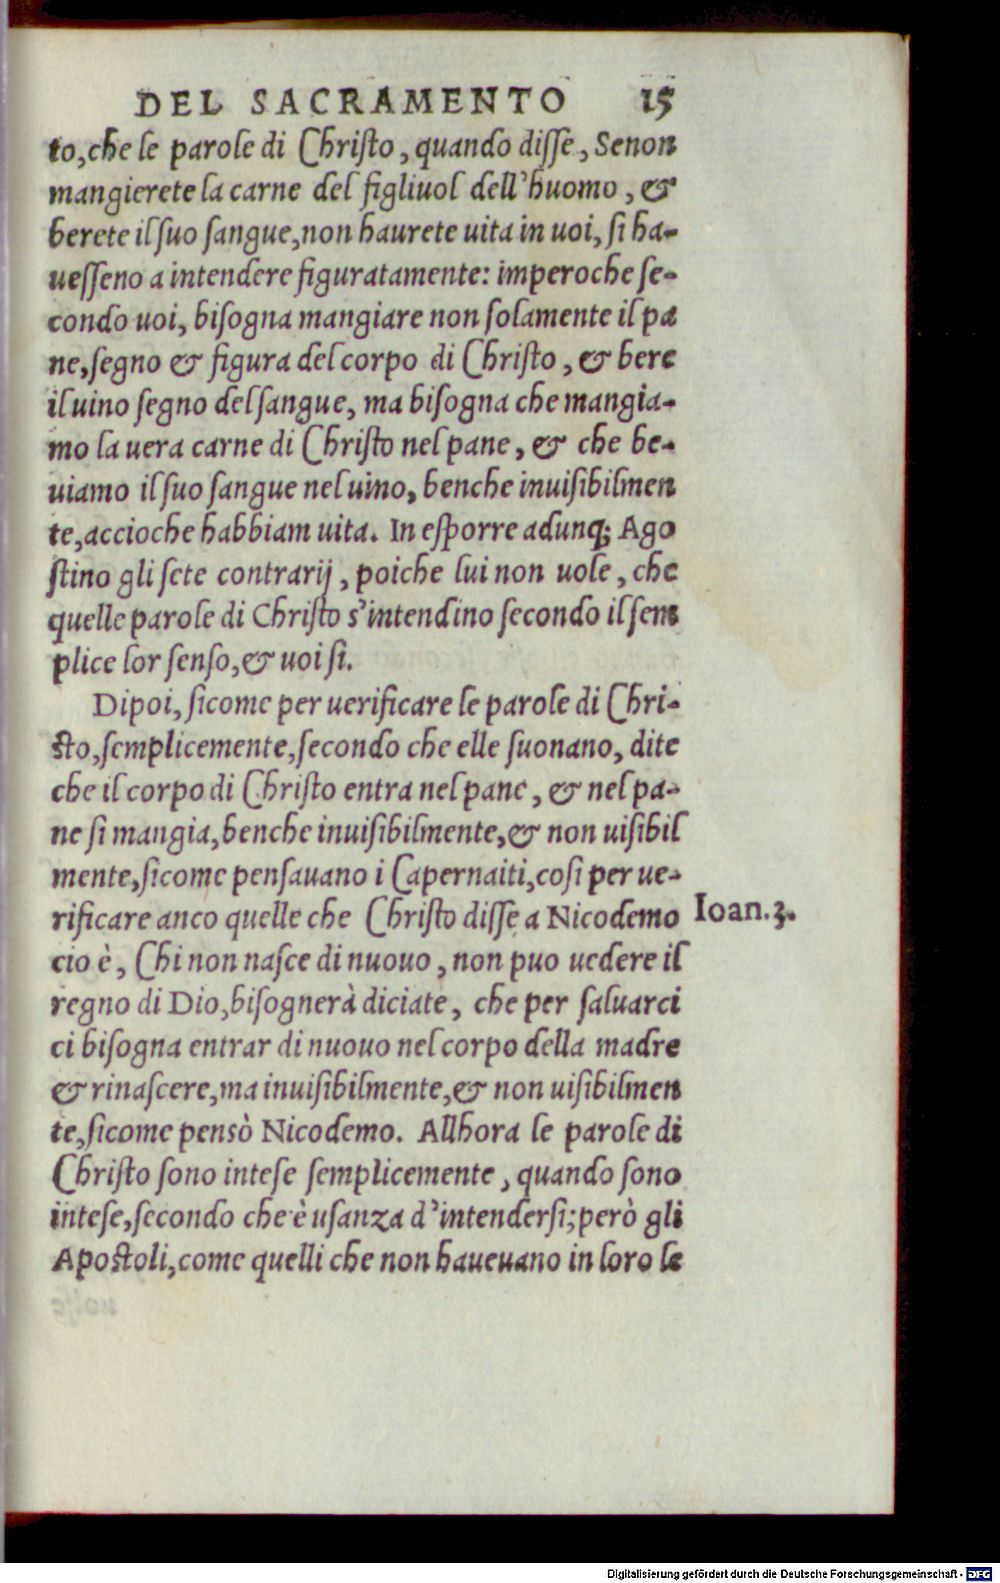 DEL SACRAMENTO 15
to, che le parole di Christo, quando disse, Senon
mangierete la carne del figliuol dell'huomo, &
berete il suo sangue, non haurete uita in uoi, si ha-
uesseno a intendere figuratamente: imperoche se-
condo uoi, bisogna mangiare non solamente il pa
ne, segno & figura del corpo di Christo, & bere
il uino segno del sangue, ma bisogna che mangia-
mo la uera carne di Christo nel pane, & che be-
uiamo il suo sangue nel uino, benche inuisibilmen
te, accioche habbiam uita. In esporre adunq; Ago
stino gli sete contrarij, poiche lui non uole, che
quelle parole di Christo s'intendino secondo il sem
plice lor senso, & uoi si.
Dipoi, sicome per uerificare le parole di Chri-
sto, semplicemente, secondo che elle suonano, dite
che il corpo di Christo entra nel pane, & nel pa-
ne si mangia, benche inuisibilmente, & non uisibil
mente, sicome pensauano i Capernaiti, cosi per ue-
rificare anco quelle che Christo disse a Nicodemo
cio è, Chi non nasce di nuouo, non puo uedere il
regno di Dio, bisognerà diciate, che per saluarci
ci bisogna entrar di nuouo nel corpo della madre
& rinascere, ma inuisibilmente, & non uisibilmen
te, sicome pensò Nicodemo. Allhora le parole di
Christo sono intese semplicemente, quando sono
intese, secondo che è usanza d'intendersi; però gli
Apostoli, come quelli che non haueuano in loro le
Ioan. 3.
Digitalisierung gefördert durch die Deutsche Forschungsgemeinschaft - DFG